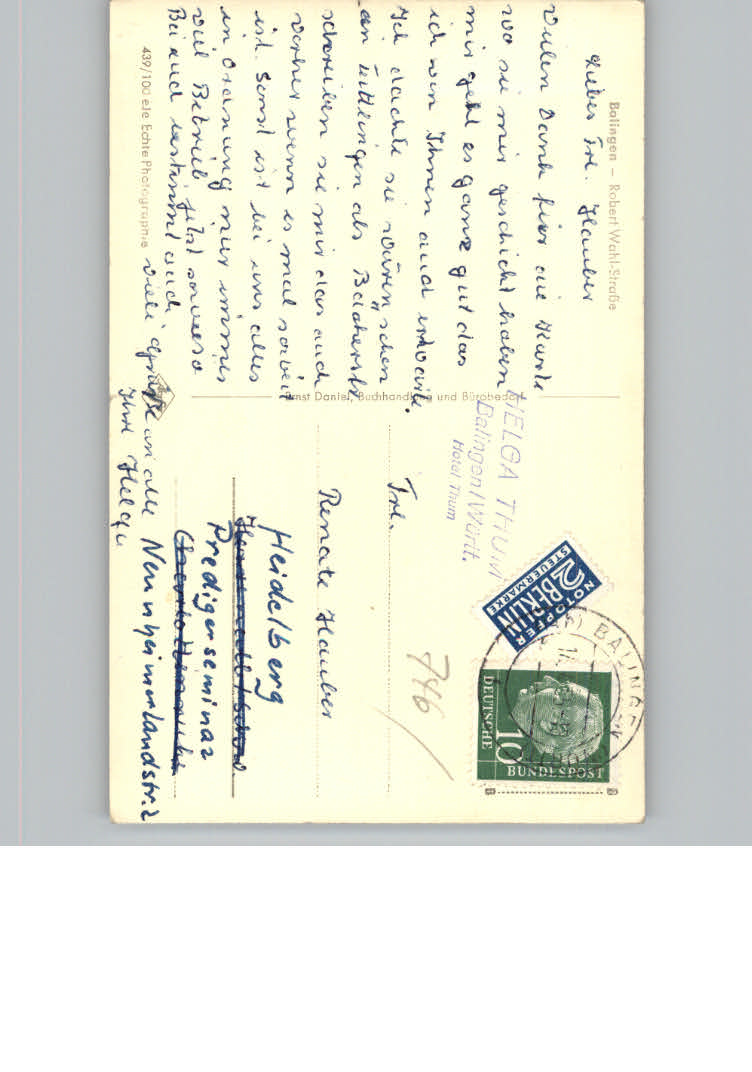 Balingen – Robert Wahl-Straße
Liebes Frl. Hauber
Vielen Dank für die Karte
wo sie mir geschickt haben
mir geht es ganz gut das
ich von Ihnen auch
Ich dachte sie wären schon
in als
schreiben sie mir dan auch
vorher wenn es mal soweit
ist. Sonst ist bei uns alles
in Ordnung nur immer
viel Betrieb jetzt sowieso
Bei euch bestimmt auch.
viele Grüße an alle
Ihre Helga
439/100 ele Echte Photographie
Ernst Daniel, Buchhandlung und Bürobedarf
HELGA THUM
Balingen/Württ.
Hotel Thum
NOTOPFER
2 BERLIN
STEUERMARKE
BALINGEN
DEUTSCHE
10
BUNDESPOST
746
Frl.
Renate Hauber
Heidelberg
Predigerseminar
Neuenheimerlandstr. 2